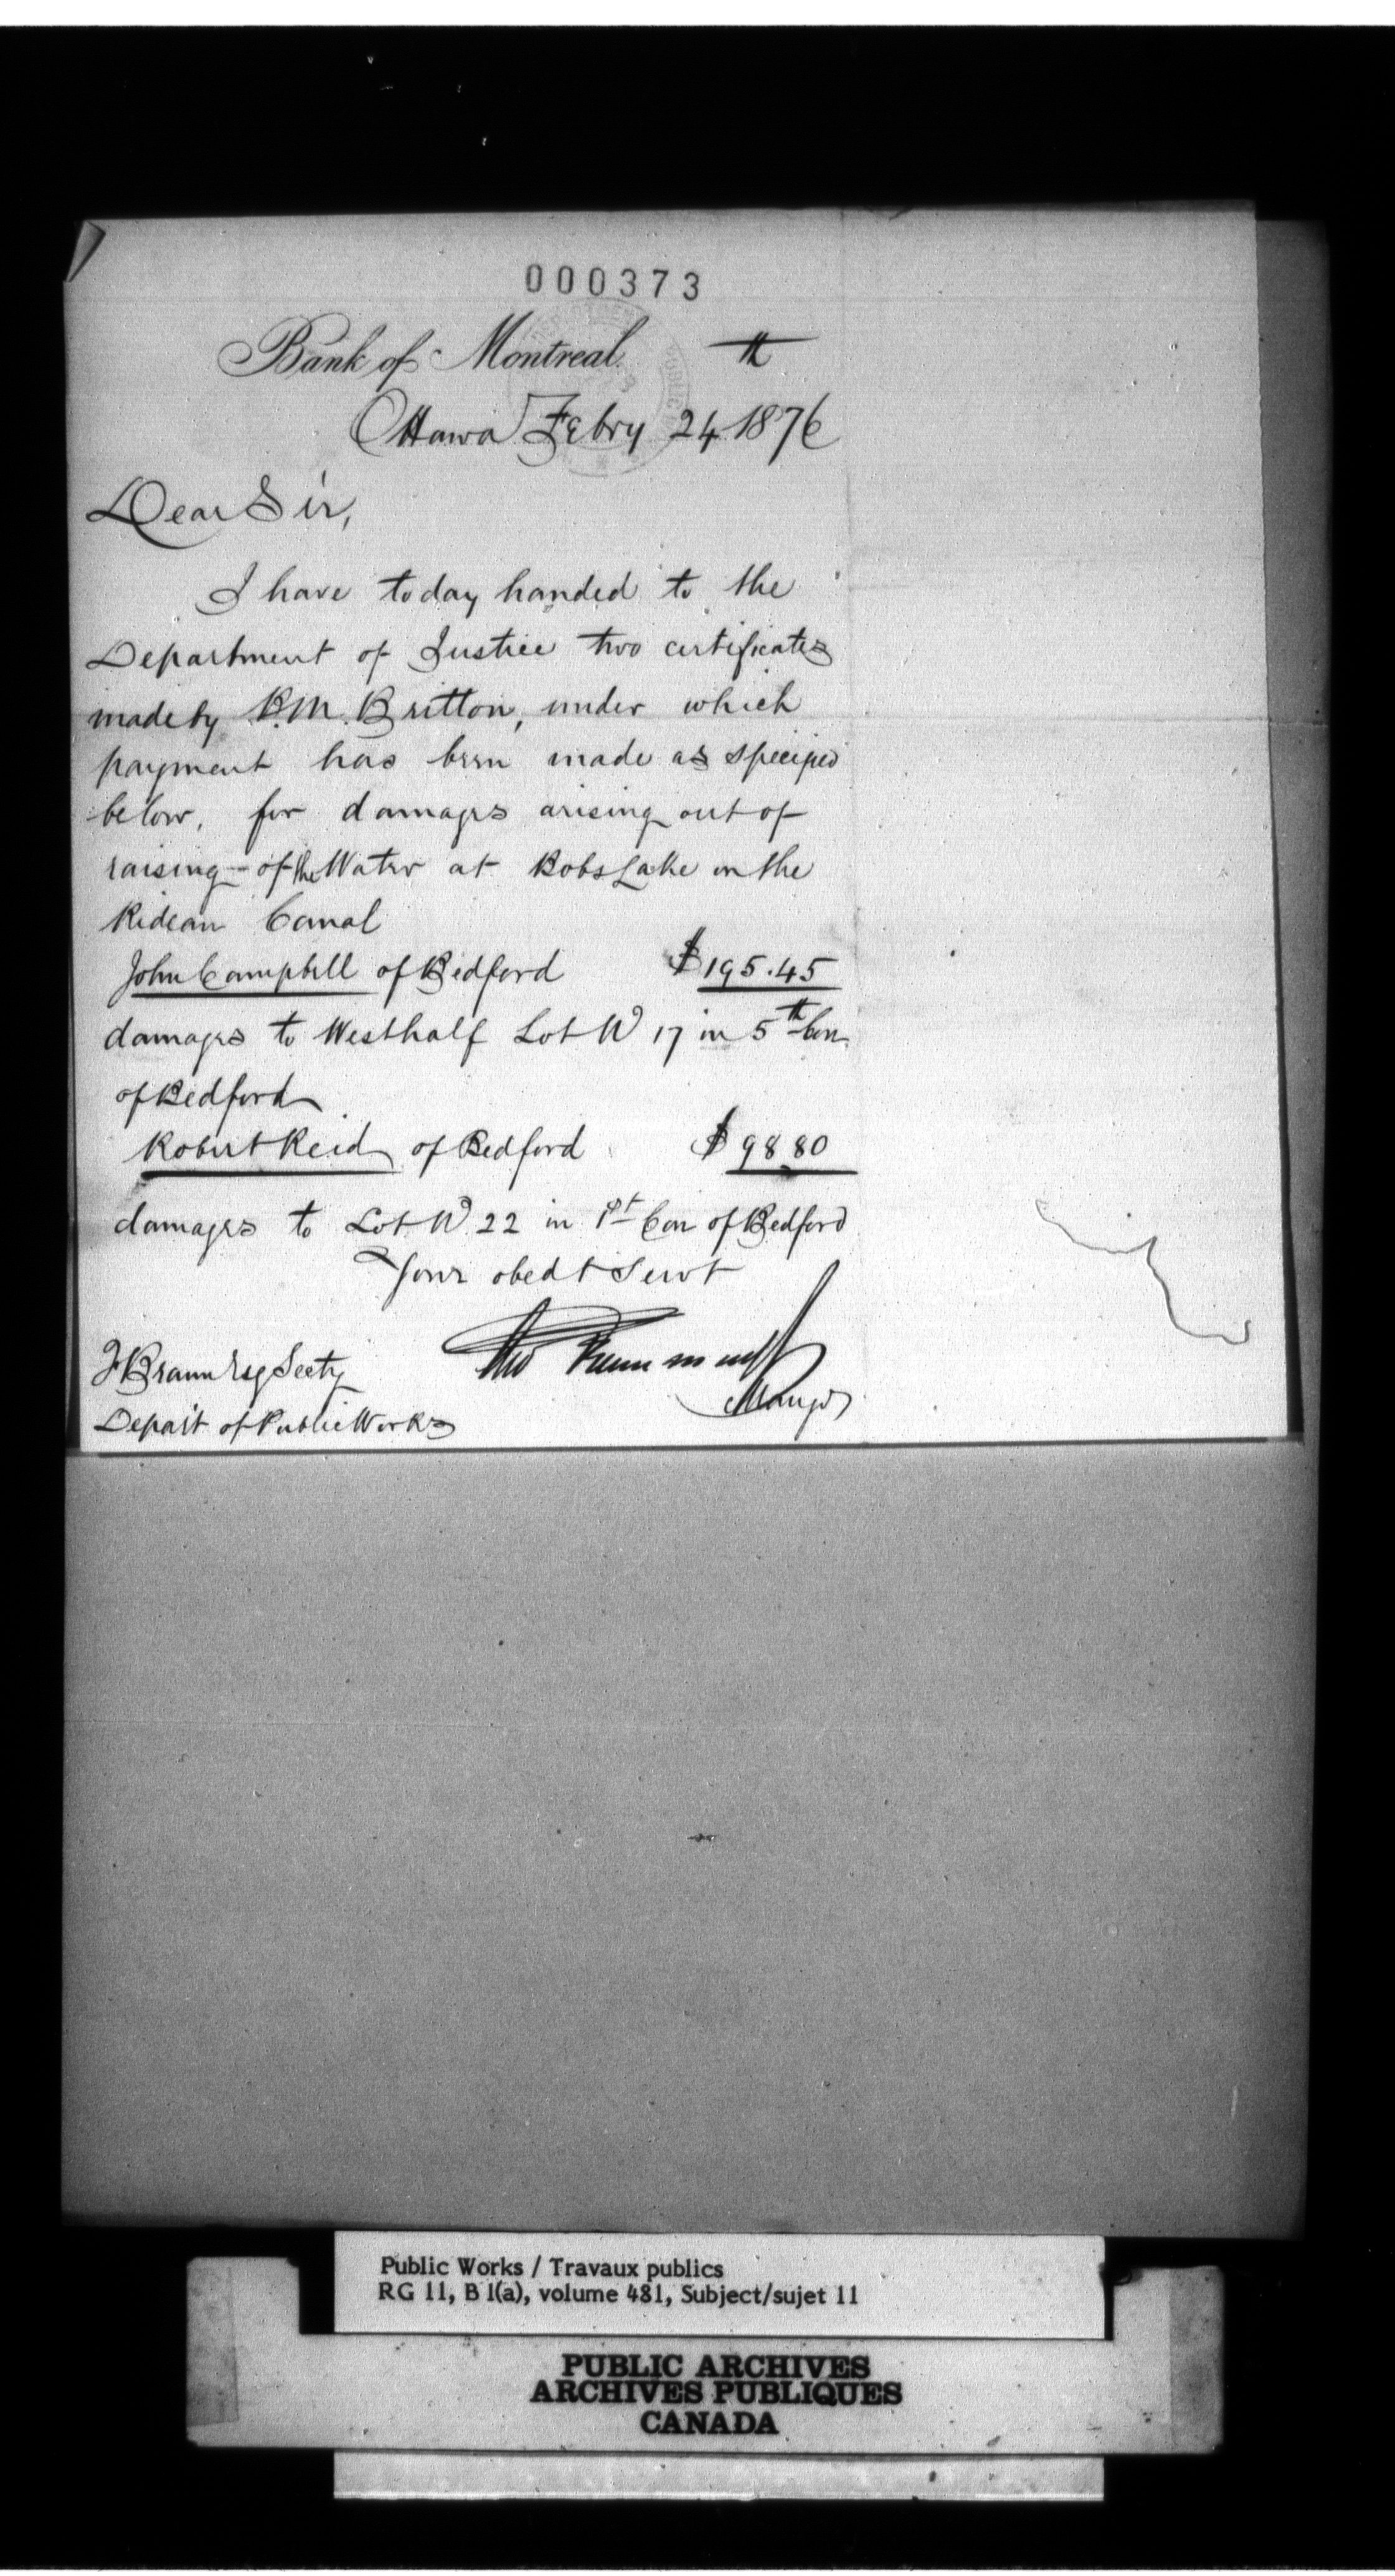 000373
Bank of Montreal.
th
Ottawa Febry 24 1876
Dear Sir,
I have today handed to the
Department of Justice two certificates
made by B.M. Britton, under which
payment has been made as specified
below, for damages arising out of
raising of the Water at Bobs Lake on the
Rideau Canal
John Campbell of Bedford $195.45
damages to West half Lot No 17 in 5th Con
of Bedford
Robert Reid of Bedford $98 80
damages to Lot No 22 in 1st Con of Bedford
Your obedt Servt
F Braun Esq Secty
Manager
Depart of Public Works
Public Works / Travaux publics
RG 11, B 1(a), volume 481, Subject/sujet 11
PUBLIC ARCHIVES
ARCHIVES PUBLIQUES
CANADA